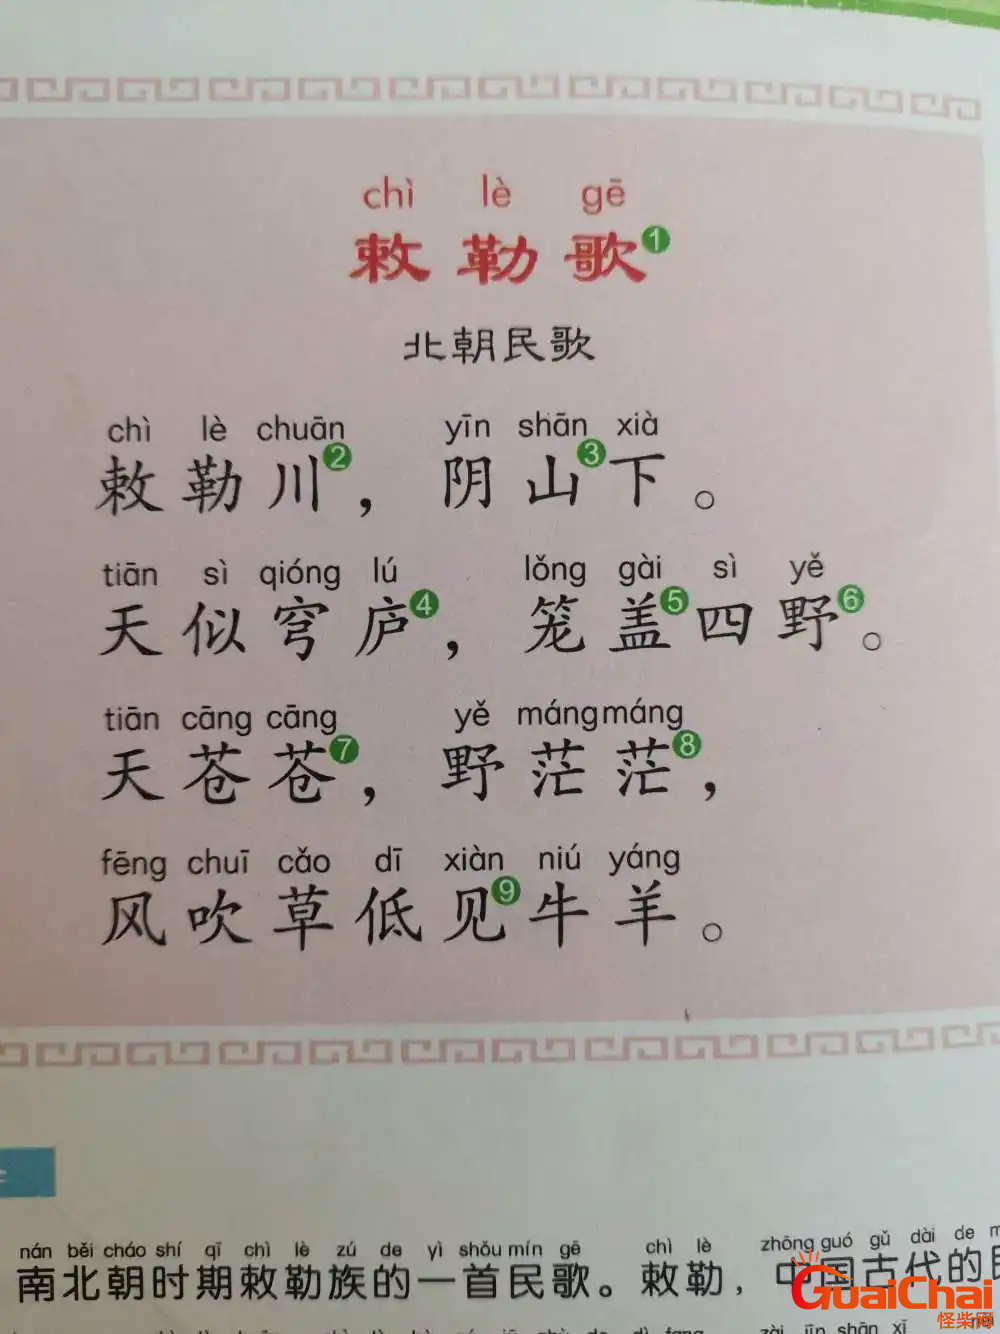 chì lè gē
敕勒歌①
北朝民歌
chì lè chuān yīn shān xià
敕勒川②，阴山③下。
tiān sì qióng lú lǒng gài sì yě
天似穹庐④，笼盖⑤四野⑥。
tiān cāng cāng yě máng máng
天苍苍⑦，野茫茫⑧，
fēng chuī cǎo dī xiàn niú yáng
风吹草低见⑨牛羊。
nán běi cháo shí qī chì lè zú de yì shǒu mín gē chì lè zhōng guó gǔ dài de
南北朝时期敕勒族的一首民歌。敕勒，中国古代的
GuaiChai
怪柴网